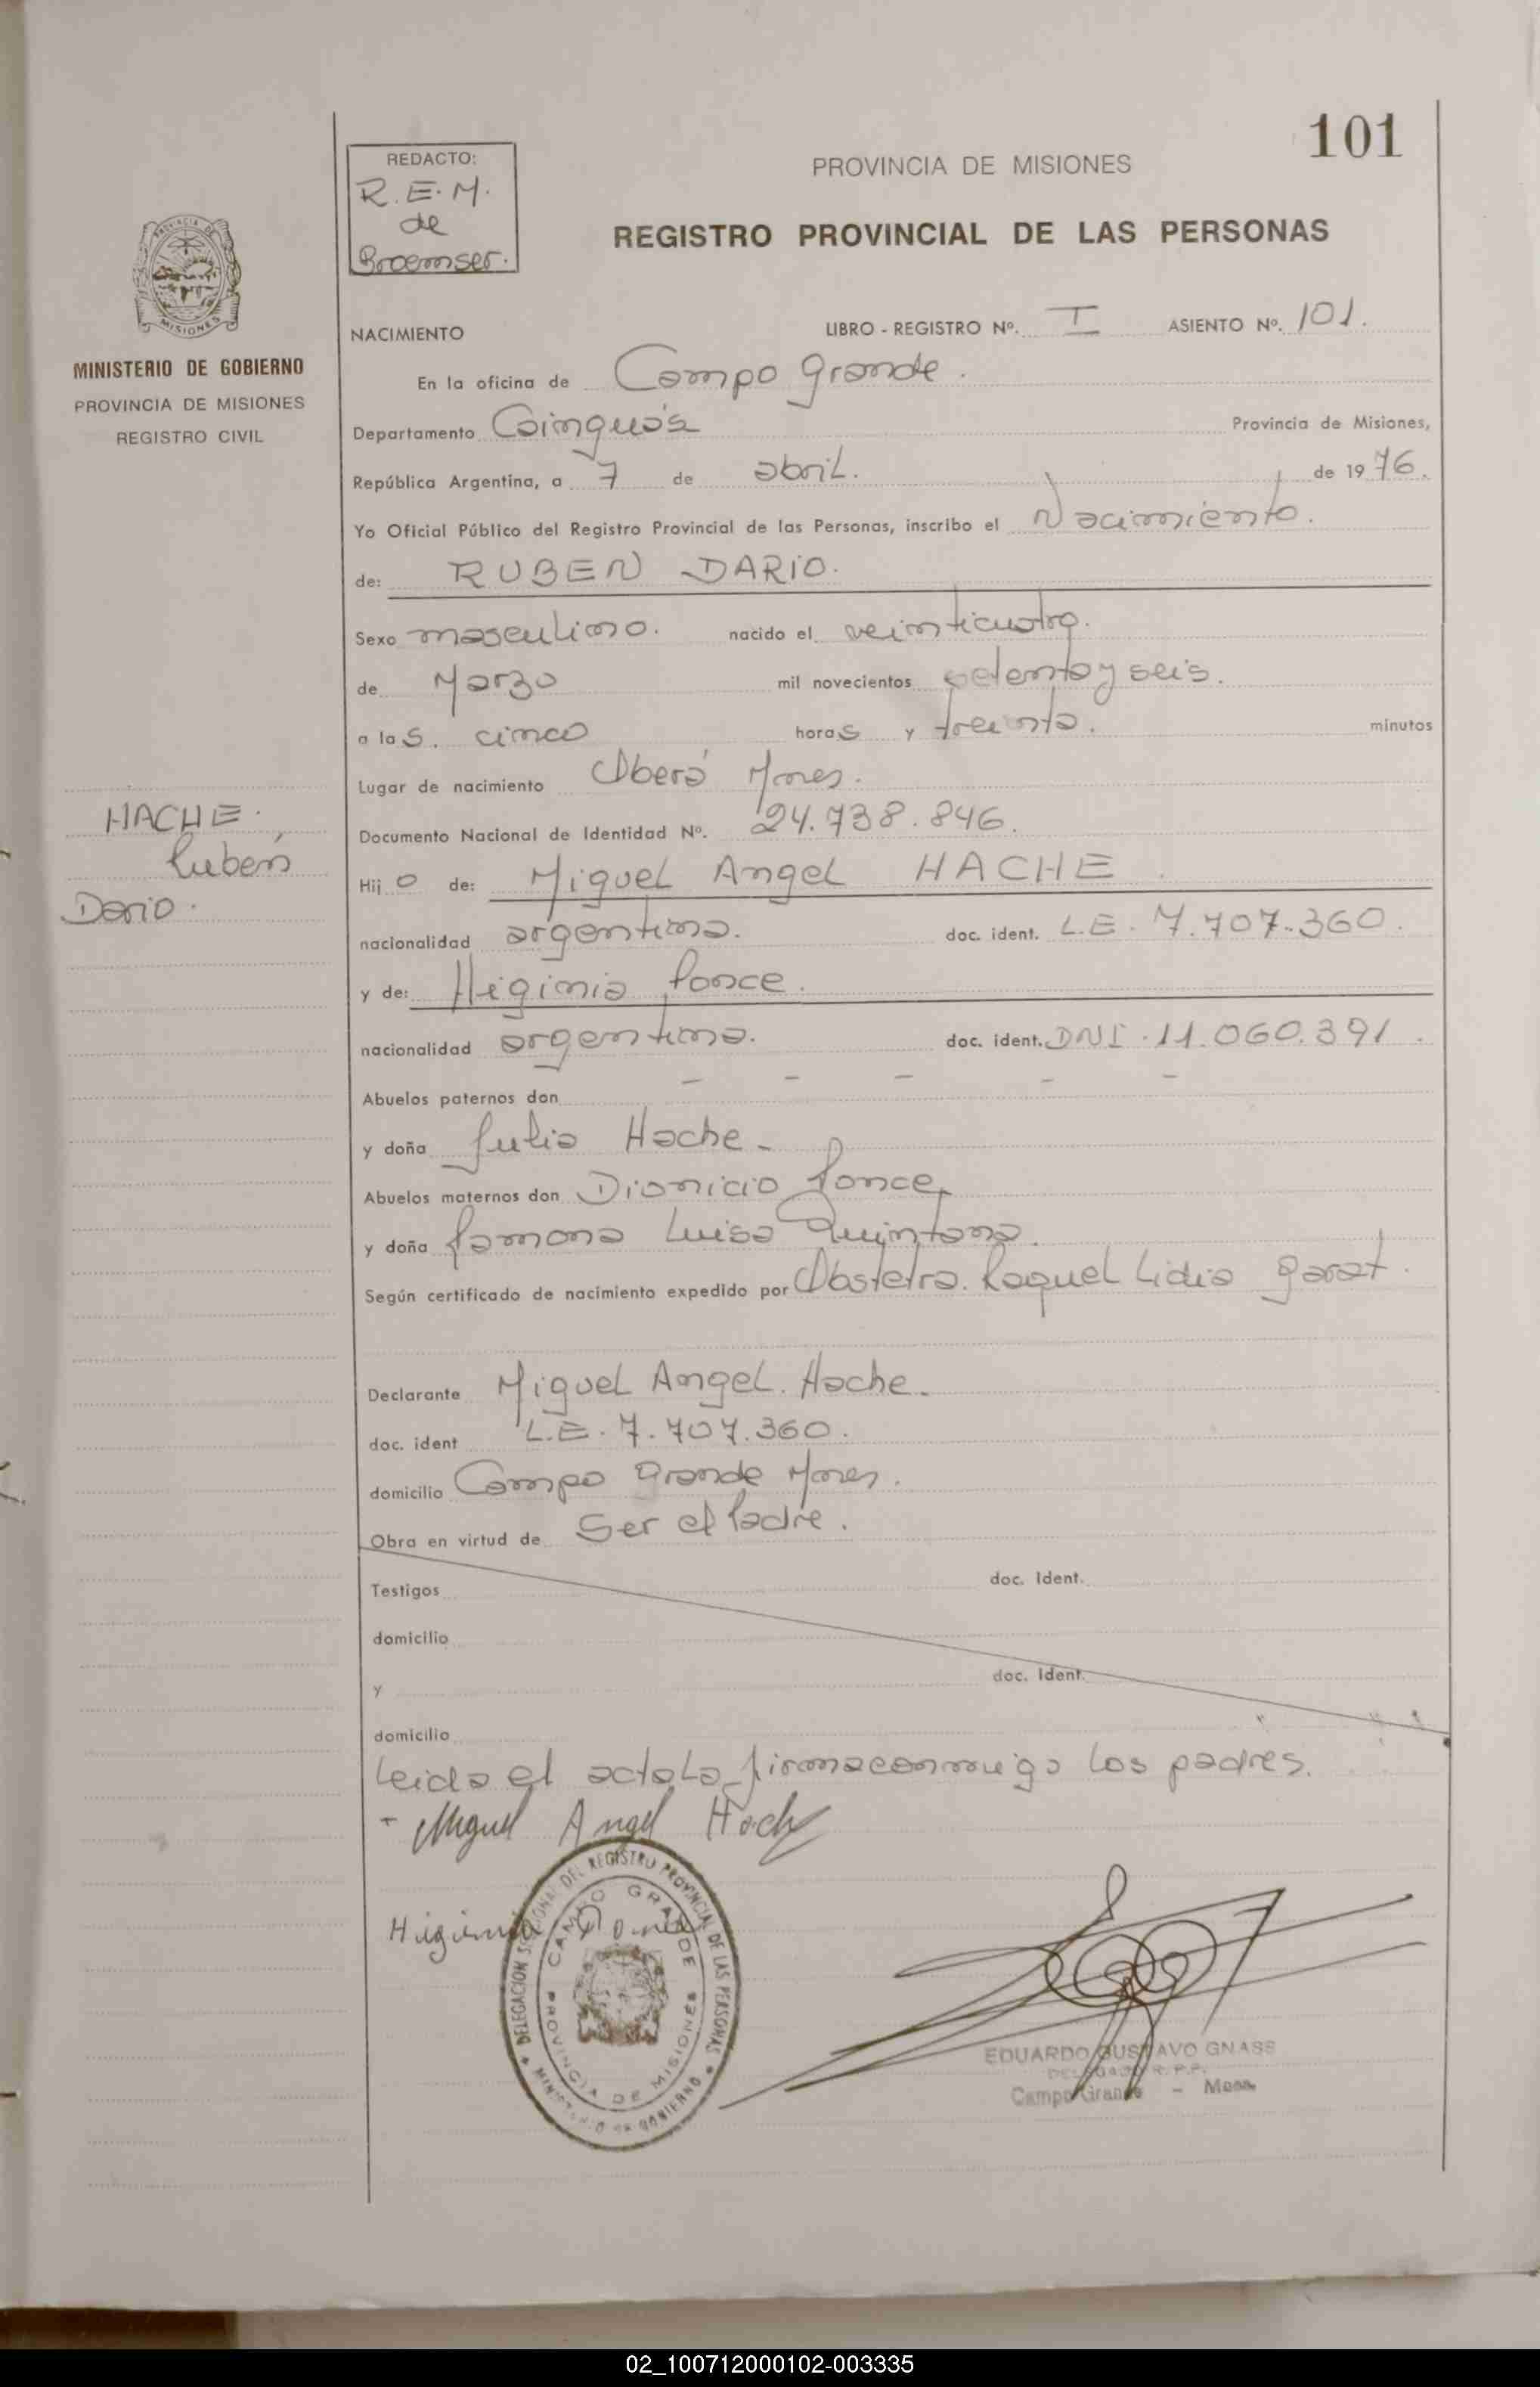 101
REDACTO:
R.E.M.
de
Broemser.
PROVINCIA DE MISIONES
REGISTRO PROVINCIAL DE LAS PERSONAS
MINISTERIO DE GOBIERNO
PROVINCIA DE MISIONES
REGISTRO CIVIL
NACIMIENTO LIBRO - REGISTRO Nº. I ASIENTO Nº. 101.
En la oficina de Campo Grande.
Departamento Cainguás Provincia de Misiones,
República Argentina, a 7 de abril. de 1976.
Yo Oficial Público del Registro Provincial de las Personas, inscribo el Nacimiento.
de: RUBEN DARIO.
Sexo masculino. nacido el veinticuatro.
de Marzo mil novecientos setenta y seis.
a las. cinco horas y treinta. minutos
Lugar de nacimiento Oberá Mnes.
Documento Nacional de Identidad Nº. 24.738.846.
HACHE.
Rubén
Dario.
Hijo de: Miguel Angel HACHE.
nacionalidad argentina. doc. ident. L.E. 7.707.360.
y de: Higinia Ponce.
nacionalidad argentina. doc. ident. DNI. 11.060.391.
Abuelos paternos don - - - - -
y doña Julia Hache-
Abuelos maternos don Dionicio Ponce,
y doña Ramona Luisa Quintana.
Según certificado de nacimiento expedido por Obstetra. Raquel Lidia Garat.
Declarante Miguel Angel. Hache.
doc. ident L.E. 7.707.360.
domicilio Campo Grande Mnes.
Obra en virtud de Ser el Padre.
Testigos doc. Ident.
domicilio
y doc. Ident.
domicilio
Leida el acta La firma conmigo los padres.
- Miguel Angel Hache
Higinia Ponce
DELEGACION SECCIONAL DEL REGISTRO PROVINCIAL DE LAS PERSONAS
MINISTERIO DE GOBIERNO
CAMPO GRANDE
PROVINCIA DE MISIONES
EDUARDO GUSTAVO GNASS
DELEGADO R.P.P.
Campo Grande - Mnes.
02_100712000102-003335